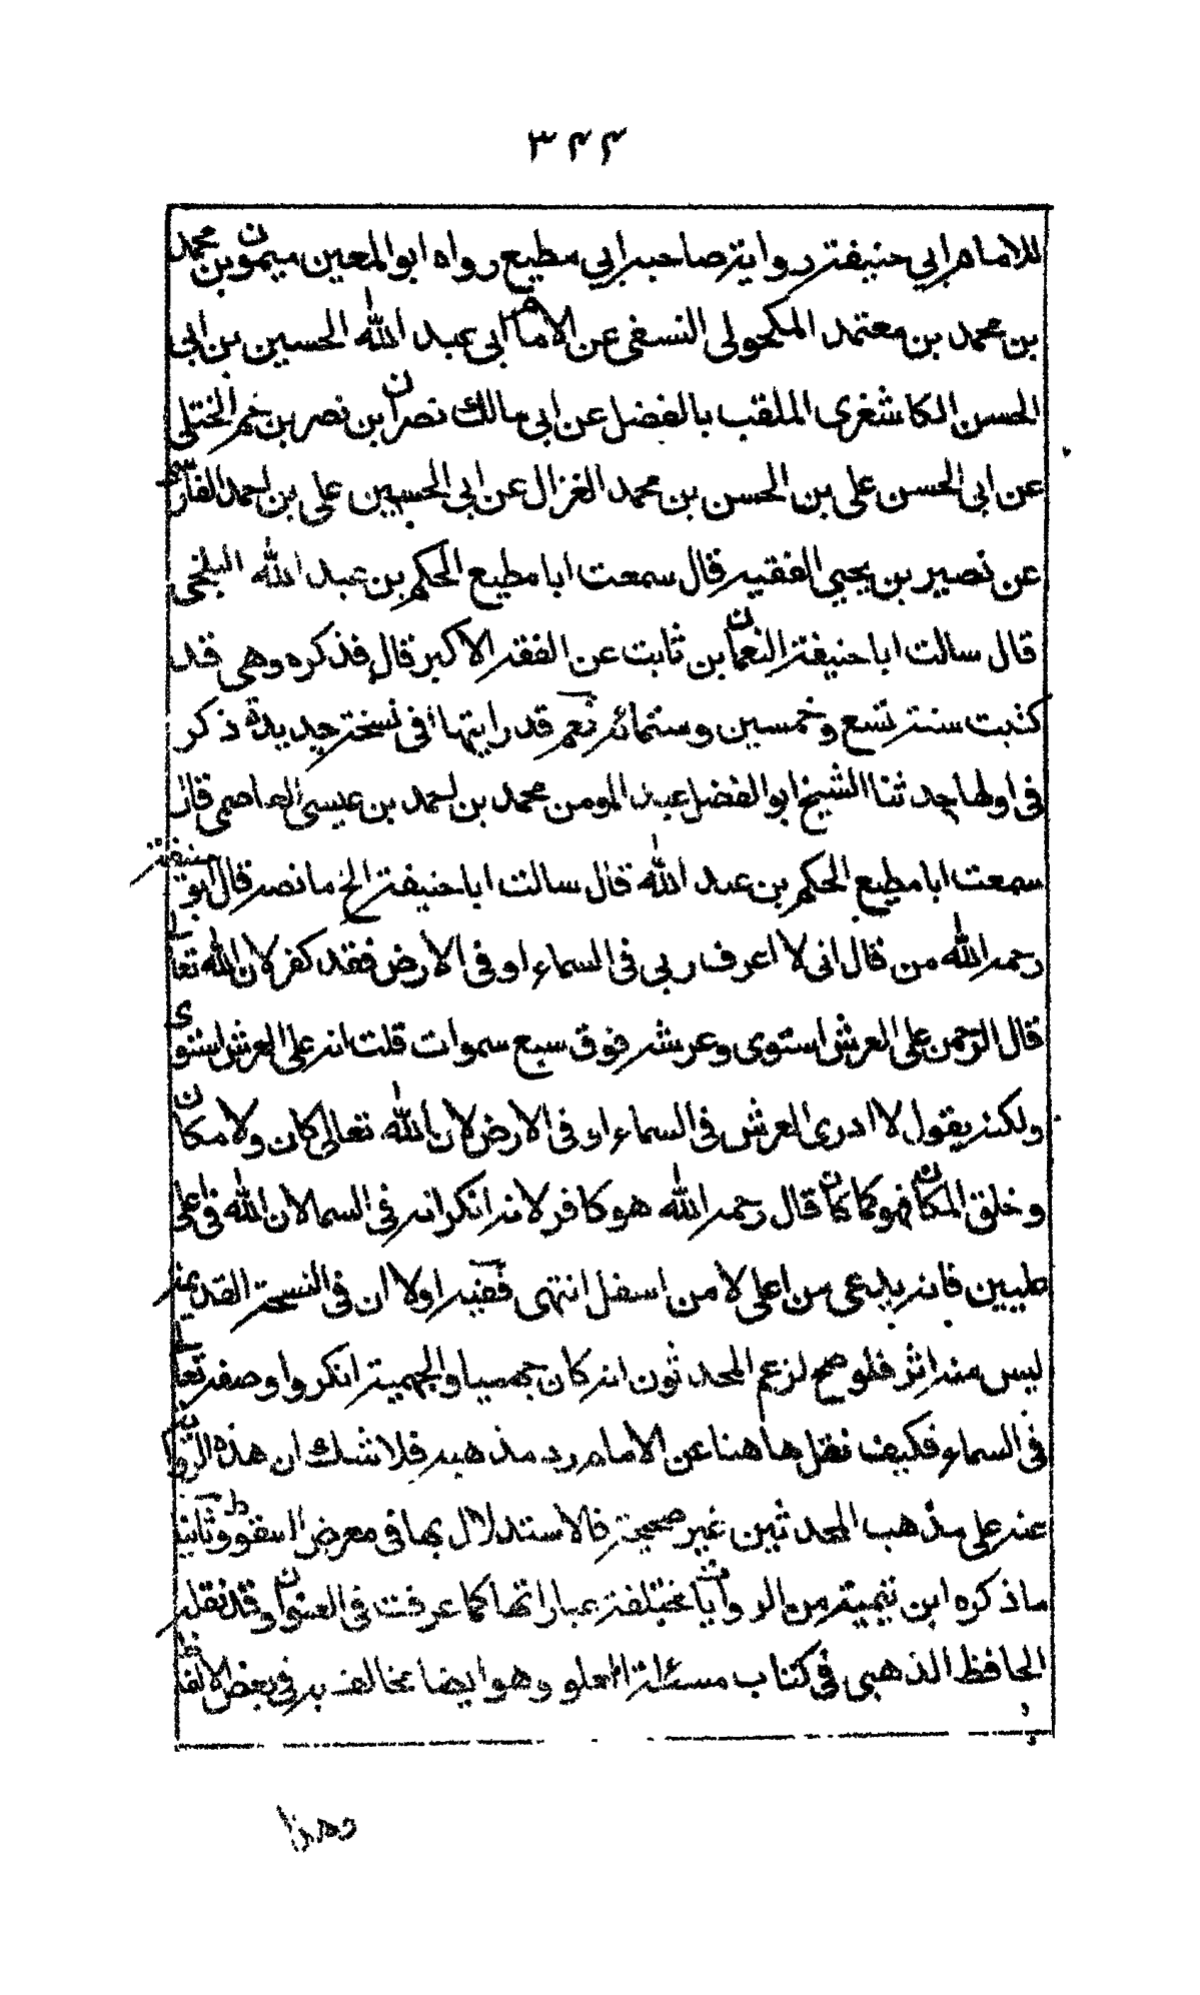 ٣٤٤
للامام ابي حنيفة رواية صاحبه ابي مطيع رواه ابو المعين ميمون بن محمد
بن محمد بن معتمد المكحولى النسفى عن الامام ابى عبد الله الحسين بن ابى
الحسن الكاشغرى الملقب بالفضل عن ابى مالك نصران بن نصر بن ختم الختلى
عن ابى الحسن على بن الحسن بن محمد الغزال عن ابى الحسين على بن احمد الفارسى
عن نصير بن يحيي الفقيه قال سمعت ابا مطيع الحكم بن عبد الله البلخى
قال سالت ابا حنيفة النعمان بن ثابت عن الفقه الاكبر قال فذكره وهى قد
كتبت سنة تسع وخمسين وستمائة نعم قد رايتها فى نسخة جديدة ذكر
فى اولها حدثنا الشيخ ابو الفضل عبد المومن محمد بن احمد بن عيسى العاصمى قال
سمعت ابا مطيع الحكم بن عبد الله قال سالت ابا حنيفة الخ ما نصه قال ابو حنيفة
رحمه الله من قال انى لا اعرف ربى فى السماء او فى الارض فقد كفر لان الله تعالى
قال الرحمن على العرش استوى وعرشه فوق سبع سموات قلت انه على العرش استوى
ولكنه يقول لا ادرى العرش فى السماء او فى الارض لان الله تعالى كان ولا مكان
وخلق المكان فهو كما كان قال رحمه الله هو كافر لانه انكر انه فى السما لان الله فى اعلى
عليين فانه يدعى من اعلى لا من اسفل انتهى ففيه اولا ان فى النسخة القديمة
ليس منه اثر فلو صح لزعم المحدثون انه كان جهميا والجهمية انكروا وصفه تعالى
فى السماء فكيف نقل هاهنا عن الامام رد مذهبه فلا شك ان هذه الروا
عنه على مذهب المحدثين غير صحيحة فالاستدلال بها فى معرض السقوط وثانيا
ما ذكره ابن تيمية من الروايات مختلفة عباراتها كما عرفت فى العنوان وقد نقله
الحافظ الذهبى فى كتاب مسئلة العلو وهو ايضا مخالف به فى بعض الالفاظ
وهذا